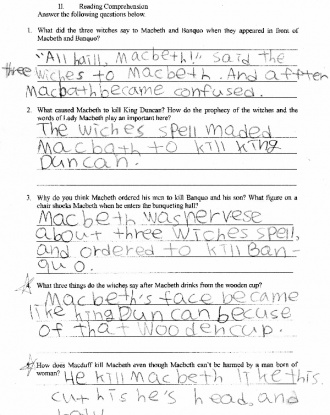 II. Reading Comprehension
Answer the following questions below.
1. What did the three witches say to Macbeth and Banquo when they appeared in front of
Macbeth and Banquo?
"All haill, Macbeth!" said the
three wiches to Macbeth. And affter
Macbath became confused.
2. What caused Macbeth to kill King Duncan? How do the prophecy of the witches and the
words of Lady Macbeth play an important here?
The wiches spell maded
Macbath to kill king
Duncan.
3. Why do you think Macbeth ordered his men to kill Banquo and his son? What figure on a
chair shocks Macbeth when he enters the banqueting hall?
Macbeth was nervese
about three wiches spell,
and ordered to kill Ban-
quo.
4. What three things do the witches say after Macbeth drinks from the wooden cup?
Macbeth's face became
like king Duncan becuse
of that woodencup.
How does Macduff kill Macbeth even though Macbeth can't be harmed by a man born of
woman? He kill Macbeth like this.
cut his he's head, and